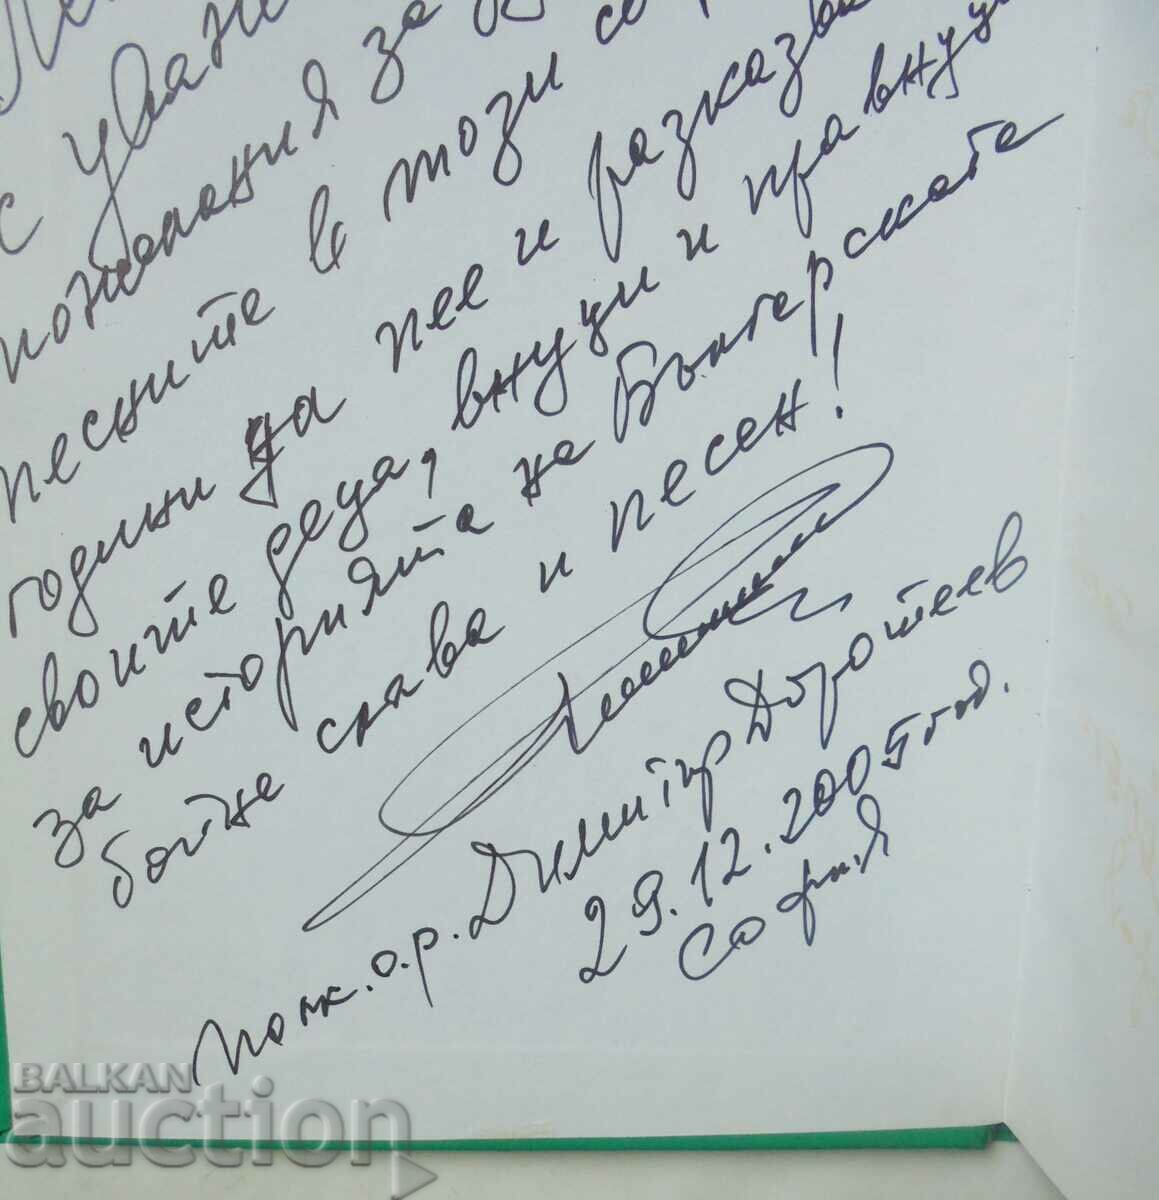 с уваже
пожелания за
песните в този
години да пее и разказва
своите деца, внуци и правнуци
за историята на Българската
бойне слава и песен!
полк. о.р. Димитър Доротеев
29.12.2005 год.
София
BALKAN
auction